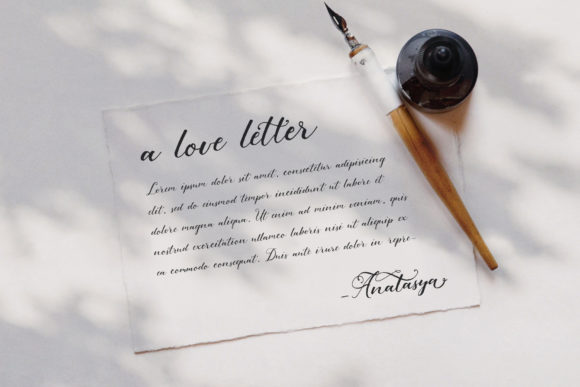 a love letter
Lorem ipsum dolor sit amet, consectetur adipisicing
elit, sed do eiusmod tempor incididunt ut labore et
dolore magna aliqua. Ut enim ad minim veniam, quis
nostrud exercitation ullamco laboris nisi ut aliquip ex
ea commodo consequat. Duis aute irure dolor in repre-
-Anatasya